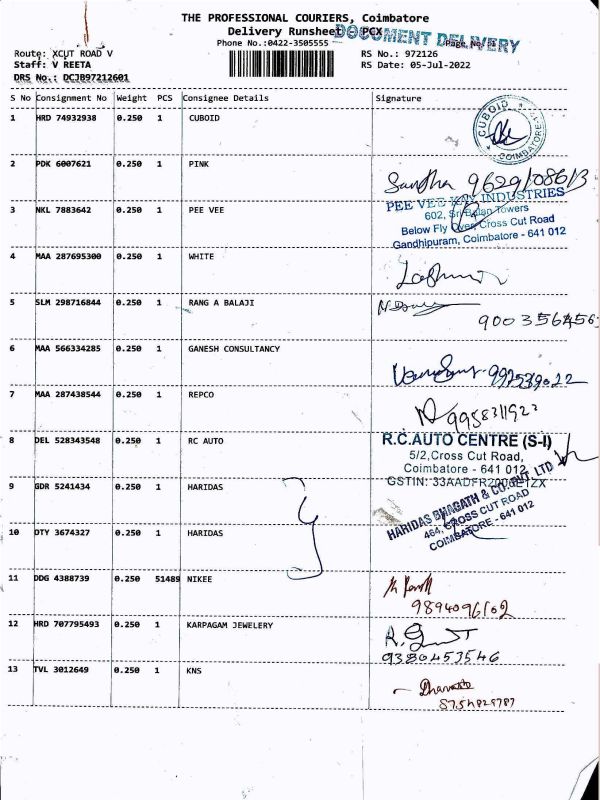 THE PROFESSIONAL COURIERS, Coimbatore
Delivery Runsheet PCX
DOCUMENT DELIVERY
Phone No.:0422-3505555
Route: XCUT ROAD V
RS No.: 972126
Staff: V REETA
RS Date: 05-Jul-2022
DRS No.: DCJB97212601
S No Consignment No Weight PCS Consignee Details Signature
1 HRD 74932938 0.250 1 CUBOID
CUBOID
COIMBATORE
2 PDK 6007621 0.250 1 PINK
Sandha 9629108613
3 NKL 7883642 0.250 1 PEE VEE
PEE VEE KAY INDUSTRIES
602, Sri Balan Towers
Below Fly Over, Cross Cut Road
Gandhipuram, Coimbatore - 641 012
4 MAA 287695300 0.250 1 WHITE
5 SLM 298716844 0.250 1 RANG A BALAJI
900356456
6 MAA 566334285 0.250 1 GANESH CONSULTANCY
7 MAA 287438544 0.250 1 REPCO
8 DEL 528343548 0.250 1 RC AUTO
R.C.AUTO CENTRE (S-I)
5/2,Cross Cut Road,
Coimbatore - 641 012
GSTIN:
9 GDR 5241434 0.250 1 HARIDAS
HARIDAS BHAGATH & CO. PVT. LTD
464, CROSS CUT ROAD
COIMBATORE - 641 012
10 DTY 3674327 0.250 1 HARIDAS
11 DDG 4388739 0.250 51489 NIKEE
12 HRD 707795493 0.250 1 KARPAGAM JEWELERY
9380453546
13 TVL 3012649 0.250 1 KNS